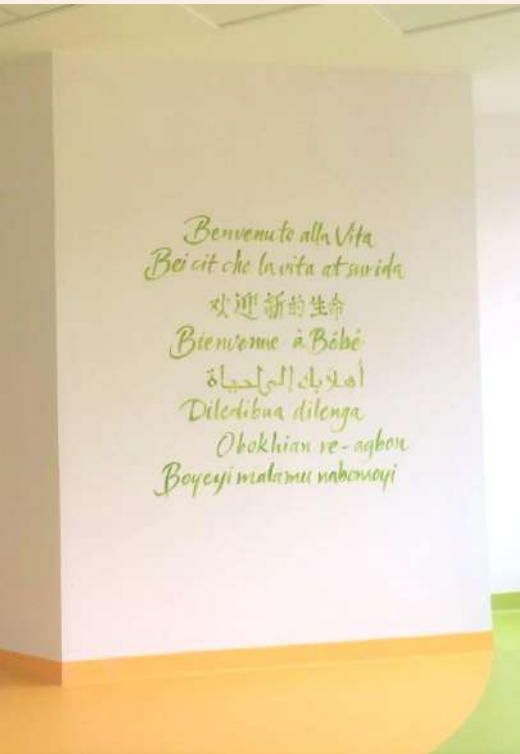 Benvenuto alla Vita
Bei cit che la vita at surida
欢迎新的生命
Bienvenue à Bébé
أهلا بك إلى الحياة
Diledibua dilenga
Obokhian re-agbon
Boyeyi malamu nabomoyi